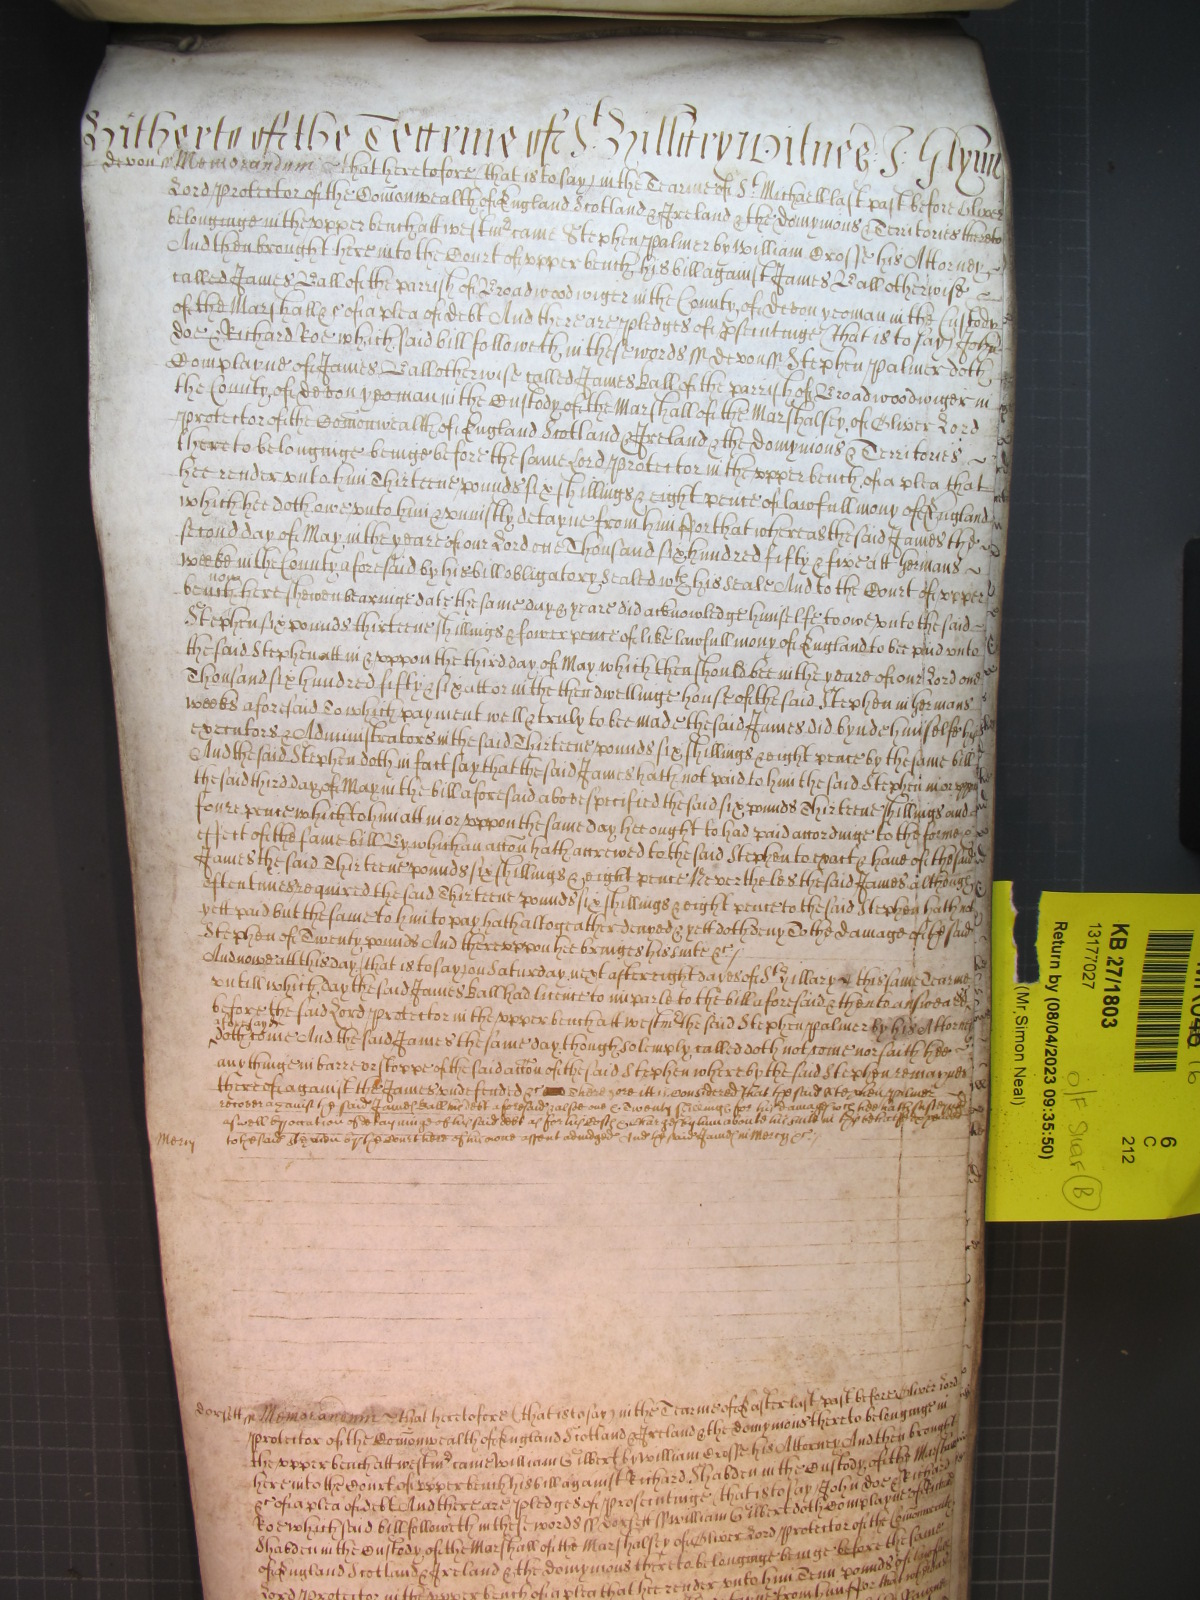 Hitherto of the Tearme of St Hillary Witnes J Glynn
Devon ss Memorandum that heretofore (that is to say) in the Tearme of St Michaell last past before Oliver
Lord Protector of the Comonwealth of England Scotland & Ireland & the domynions & Territories thereto
belonginge in the upper bench att westmr came Stephen Palmer by William Crosse his Attorney
And then brought here into the Court of upper bench his bill against James Ball otherwise
called James Ball of the parrish of Broadwoodwiger in the County of devon yeoman in the Custody
of the Marshall &c of a plea of debt And there are pledges of Psecutinge (that is to say) John
doe & Richard Roe which said bill followeth in these words ss devon ss Stephen Palmer doth
Complayne of James Ball otherwise called James Ball of the parrish of Broadwoodwiger in
the County of devon yeoman in the Custody of the Marshall of the Marshalsey of Oliver Lord
Protector of the Comonwealth of England Scotland & Ireland & the domynions & Territories
thereto belonginge beinge before the same Lord Protector in the upper bench of a plea that
hee render unto him Thirteene pounds six shillings & eight pence of lawfull mony of England
which hee doth owe unto him & uniustly detayne from him For that whereas the said James the
second day of May in the yeare of our Lord one Thousand six hundred fifty & five att Hermans
weeke in the County aforesaid by his bill obligatory Sealed wth his Seale And to the Court of upper
bench here now shewen bearinge date the same day & yeare did acknowledge himselfe to owe unto the said
Stephen six pounds thirteene shillings & fower pence of like lawfull mony of England to bee paid unto
the said Stephen att in & uppon the third day of May which then should bee in the yeare of our Lord one
Thousand six hundred fifty & six att or in the then dwellinge house of the said Stephen in Hermans
weeke aforesaid To which payment well & truly to bee made the said James did bynde himselfe his
executors & Administrators in the said Thirteene pounds six shillings & eight pence by the same bill
And the said Stephen doth in fact say that the said James hath not paid to him the said Stephen in or uppon
the said third day of May in the bill aforesaid above specified the said six pounds Thirteene shillings and
foure pence which to him att in or uppon the same day hee ought to had paid accordinge to the forme &
effect of the same bill By which an accon hath accrewed to the said Stephen to exact & have of the said
James the said Thirteene pounds six shillings & eight pence Neverthelesthe said James although
oftentimes required the said Thirteene pounds six shillings & eight pence to the said Stephen hath not
yett paid but the same to him to pay hath altogeather denyed & yett doth deny To the damage of the said
Stephen of Twenty pounds And thereuppon hee bringes his suite &c
And nowe att this day (that is to say) on Saturday next after eight dayes of St Hillary this same Tearme
untill which day the said James Ball had licence to imparle to the bill aforesaid & then to answeare &c
before the said Lord Protector in the upper bench att westmr the said Stephen Palmer by his Attorney
aforesayd
doth come And the said James the same day though solemply called doth not come nor saith hee
any thinge in barre or stoppe of the said accon of the said Stephen whereby the said Stephen remaynes
thereof against the James undefended &c Therefore itt is considered that the said Stephen Palmer
recover against the said James Ball his debt aforesaid & alsoe one & Twenty shillings for his damages which hee hath susteyned
aswell by occation of detayninge of his said debt as for his costs & charges by him about his suite in that behalfe
to the said Stephen by the Court here of his owne assent adiudged And the said James in Mercy &c
Mercy
Dorsett ss Memorandum that heretofore (that is to say) in the Tearme of Easter last past before Oliver Lord
Protector of the Comonwealth of England Scotland & Ireland & the domynions thereto belonginge in
the upper bench att westmr came William Gilbert by William Crosse his Attorney And then brought
here into the Court of upper bench his bill against Richard Shabden in the Custody of the Marshall
&c of a plea of debt And there are pledges of Prosecutinge (that is to say) John Doe & Richard
Roe which said bill followeth in these words ss Dorsett ss William Gilbert doth Complayne of Richard
Shabden in the Custody of the Marshall of the Marshalsey of Oliver Lord Protector of the Comonwealth
of England Scotland & Ireland & the domynions thereto belonginge beinge before the same
Lord Protector in the upper bench of a plea that hee render unto him Tenn pounds of lawfull
KB 27/1803
13177027
Return by (08/04/2023 09:35:50)
(Mr Simon Neal)
6
C
212
B